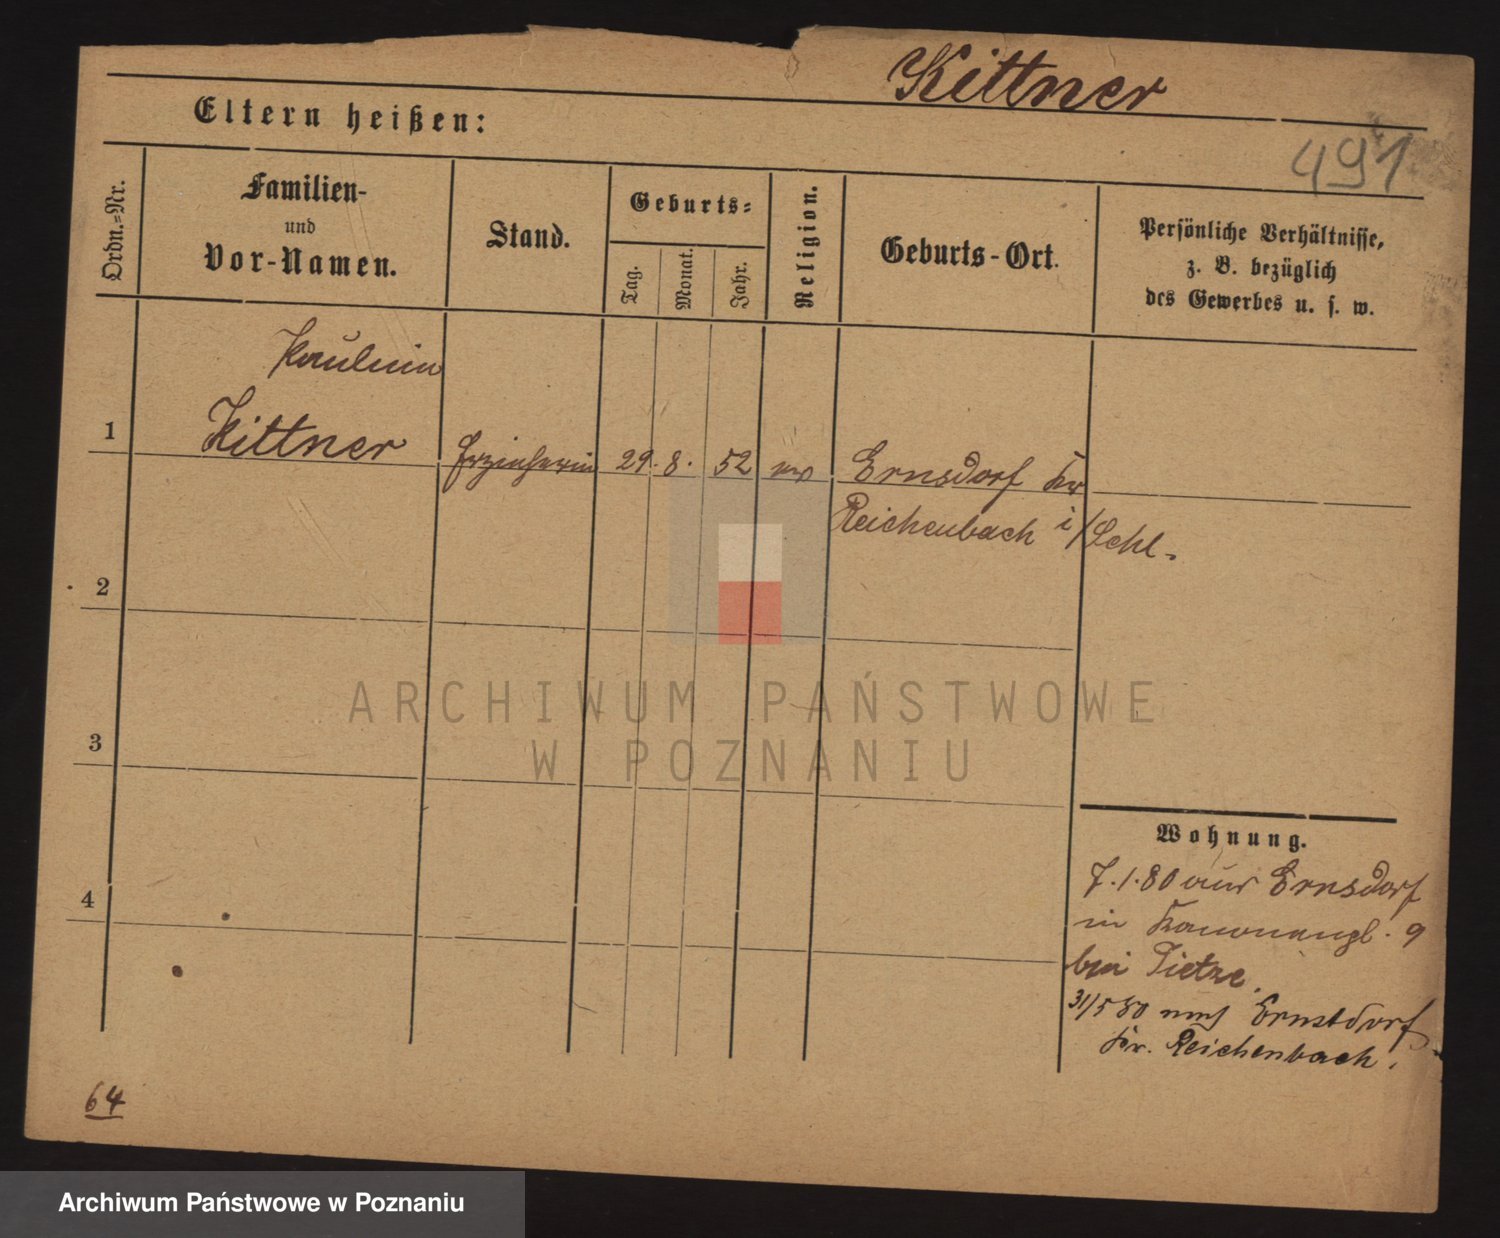 Kittner
491
Eltern heißen:
Ordn.=Nr.
Familien-
und
Vor-Namen.
Stand.
Geburts=
Tag.
Monat.
Jahr.
Religion.
Geburts-Ort.
Persönliche Verhältnisse,
z. B. bezüglich
des Gewerbes u. s. w.
Pauline
1 Kittner Erzieherin 29. 8. 52 ev Ernsdorf Kr
Reichenbach i/Schl.
2
3
4
Wohnung.
7.1.80 aus Ernsdorf
in Kanonenpl. 9
bei Tietze.
31/5 80 nach Ernstdorf
Kr. Reichenbach.
64
ARCHIWUM PAŃSTWOWE
W POZNANIU
Archiwum Państwowe w Poznaniu